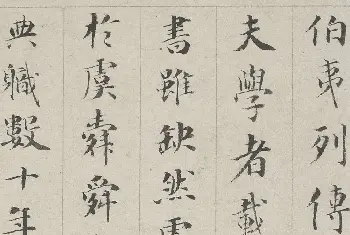 伯夷列傳
夫學者載
書雖缺然
於虞舜舜
典職數十年